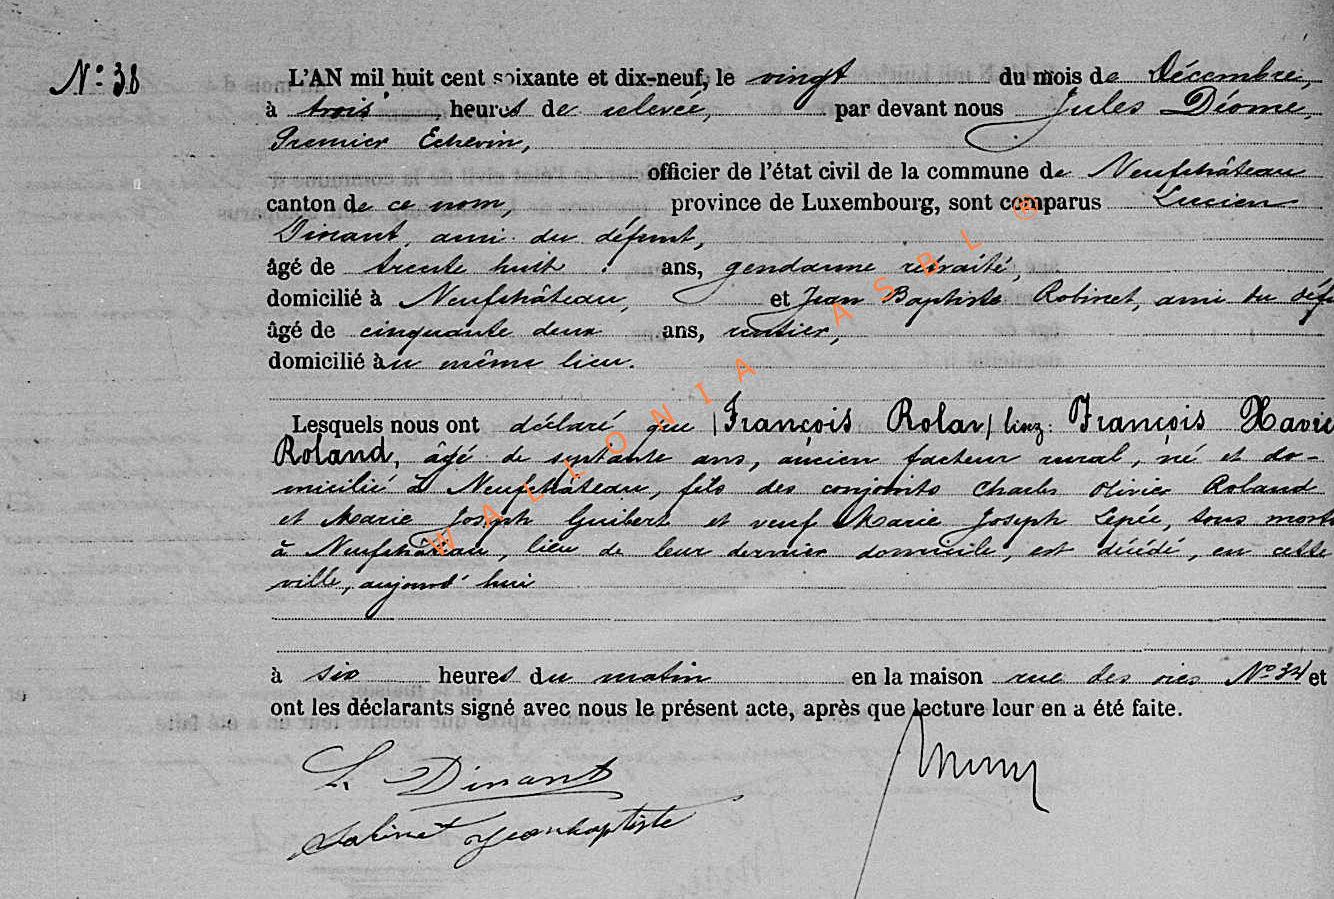 N° 38
L'AN mil huit cent soixante et dix-neuf, le vingt du mois de Décembre,
à trois heures de relevée, par devant nous Jules Déome,
Premier Echevin,
officier de l'état civil de la commune de Neufchâteau
canton de ce nom, province de Luxembourg, sont comparus Lucien
Dinant, ami du défunt,
âgé de trente huit ans, gendarme retraité,
domicilié à Neufchâteau, et Jean Baptiste Robinet, ami du défu
âgé de cinquante deux ans, rentier,
domicilié au même lieu.
Lesquels nous ont déclaré que François Rolar François Xavie
Roland, âgé de septante ans, ancien facteur rural, né et do-
micilié à Neufchâteau, fils des conjoints Charles Olivier Roland
et Marie Joseph Guibert et veuf Marie Joseph Lepée, tous morts
à Neufchâteau, lieu de leur dernier domicile, est décédé, en cette
ville, aujourd'hui
à six heures du matin en la maison rue des oies N° 34 et
ont les déclarants signé avec nous le présent acte, après que lecture leur en a été faite.
L. Dinant
Robinet Jeanbaptiste
WALLONIA ASBL ®